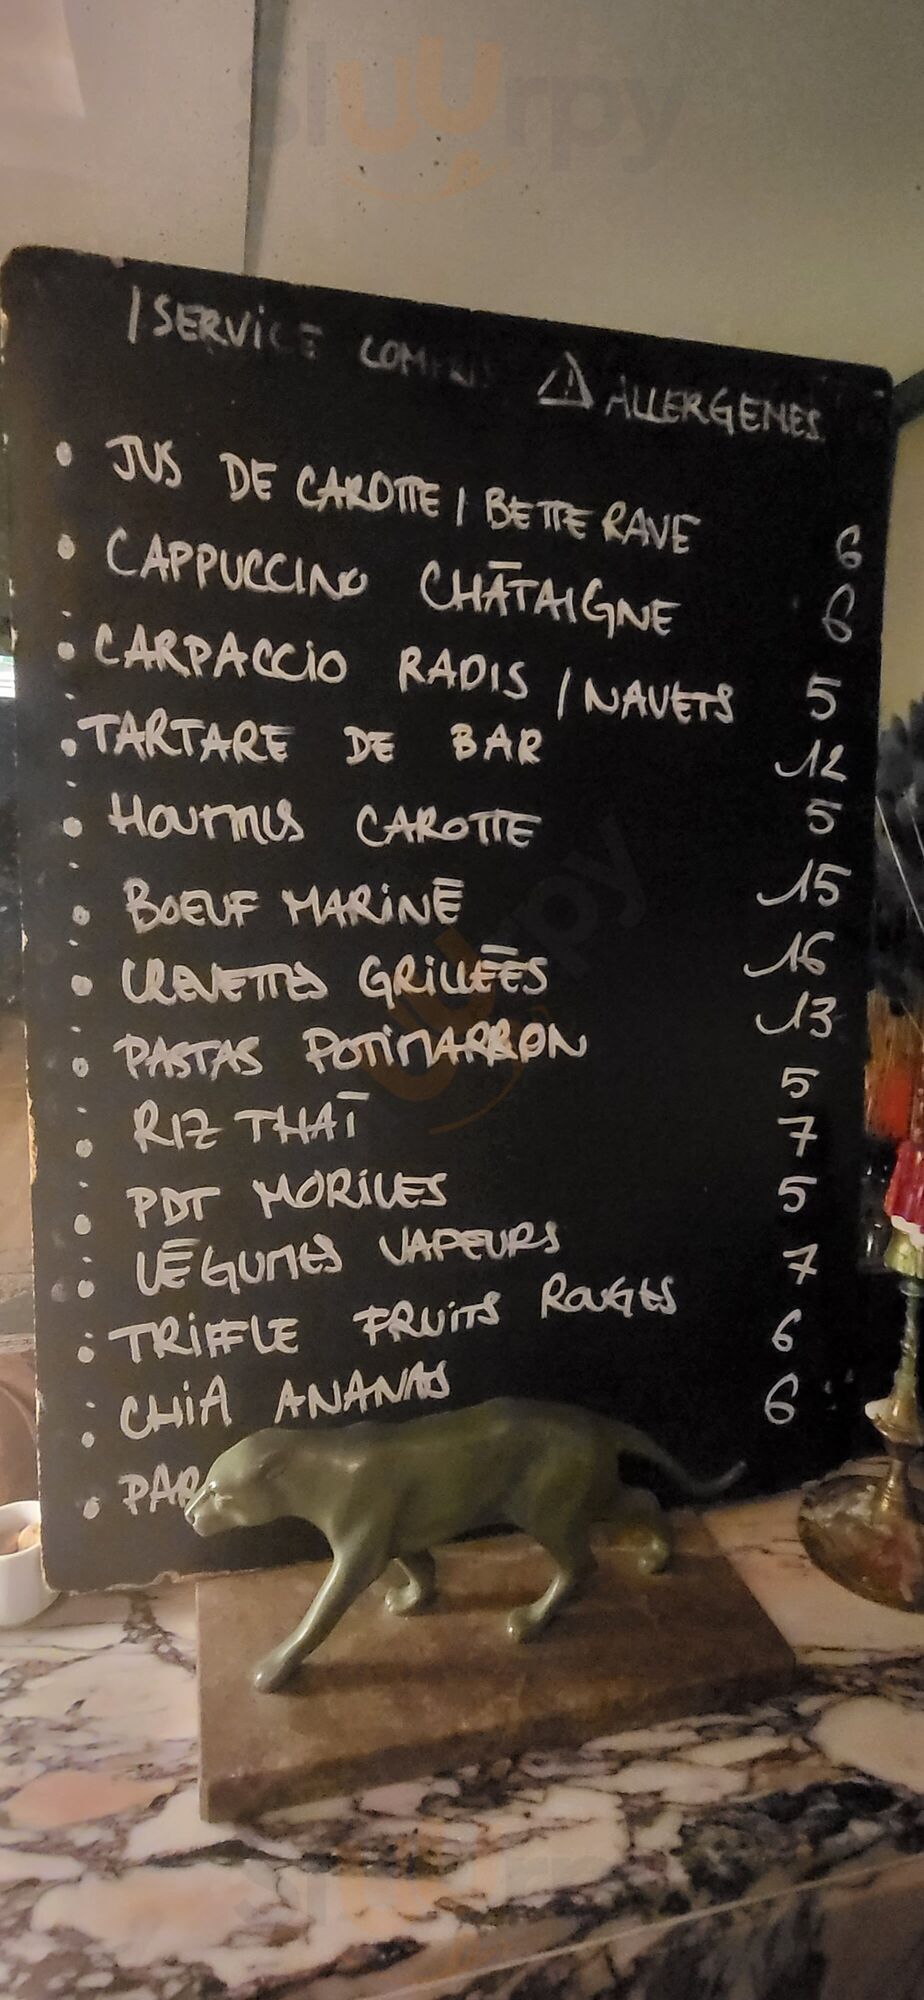 sluurpy
/ SERVICE COMPRIS ⚠ ALLERGENES
• JUS DE CAROTTE / BETTERAVE 6
• CAPPUCCINO CHÂTAIGNE 6
• CARPACCIO RADIS / NAVETS 5
• TARTARE DE BAR 12
• HOUMUS CAROTTE 5
• BOEUF MARINÉ 15
• CREVETTES GRILLÉES 16
• PASTAS POTIMARRON 13
• RIZ THAÏ 5
• PDT MORILLES 7
• LÉGUMES VAPEURS 5
• TRIFFLE FRUITS ROUGES 7
• CHIA ANANAS 6
• PAR 6